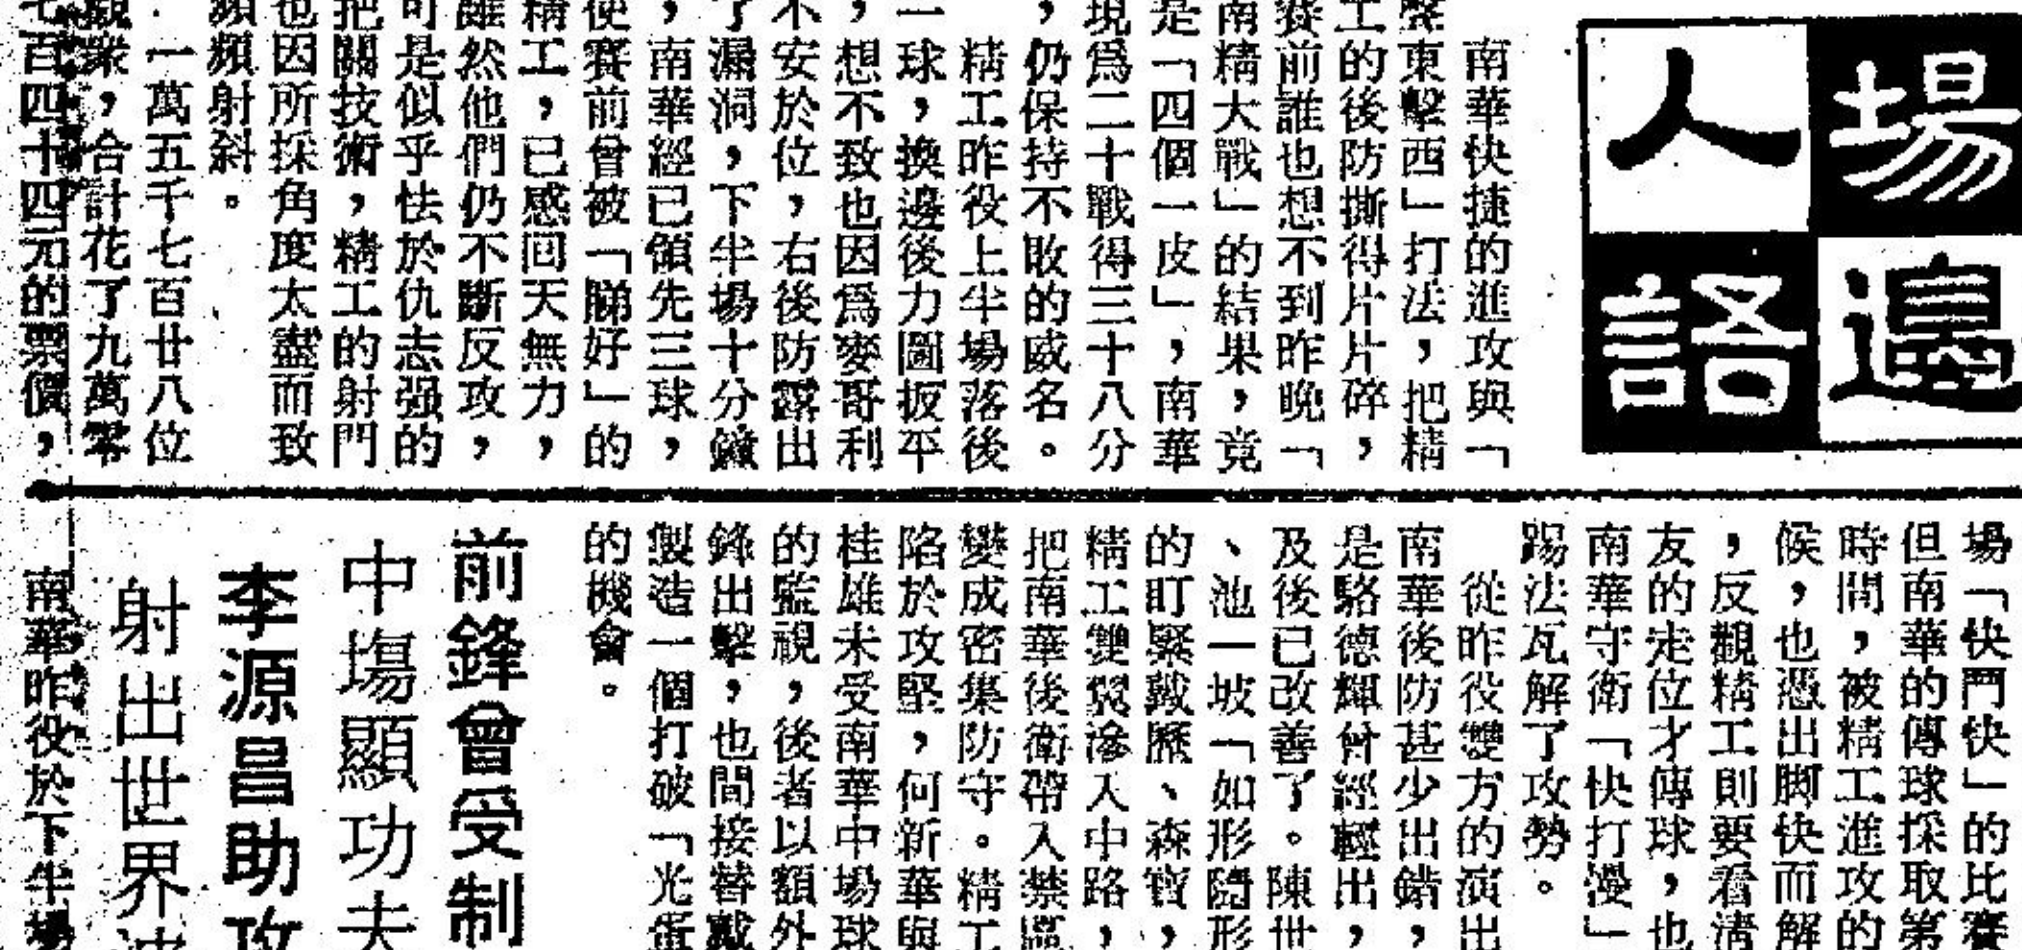 場邊
人語
南華快捷的進攻與「
聲東擊西」打法，把精
工的後防撕得片片碎，
賽前誰也想不到昨晚「
南精大戰」的結果，竟
是「四個一皮」，南華
現爲二十戰得三十八分
，仍保持不敗的威名。
精工昨役上半場落後
一球，換邊後力圖扳平
，想不致也因爲麥哥利
不安於位，右後防露出
了漏洞，下半場十分鐘
，南華經已領先三球，
使賽前曾被「睇好」的
精工，已感回天無力，
雖然他們仍不斷反攻，
可是似乎怯於仇志强的
把關技術，精工的射門
也因所採角度太盡而致
頻頻射斜。
一萬五千七百廿八位
觀衆，合計花了九萬零
七百四十四元的票價，
場「快鬥快」的比賽
但南華的傳球採取第
時間，被精工進攻的
候，也憑出脚快而解
，反觀精工則要看淸
友的走位才傳球，也
南華守衛「快打慢」
踢法瓦解了攻勢。
從昨役雙方的演出
南華後防甚少出錯，
是駱德輝曾經輕出，
及後已改善了。陳世
、池一坡「如形隨形
的盯緊戴歷、森寶，
精工雙翼滲入中路，
把南華後衛帶入禁區
變成密集防守。精工
陷於攻堅，何新華與
桂雄未受南華中場球
的監視，後者以額外
鋒出擊，也間接替戴
製造一個打破「光蛋
的機會。
前鋒曾受制
中塲顯功夫
李源昌助攻
射出世界波
南華昨役於下半場